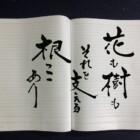 花も樹も
それを
支える
根っこ
あり